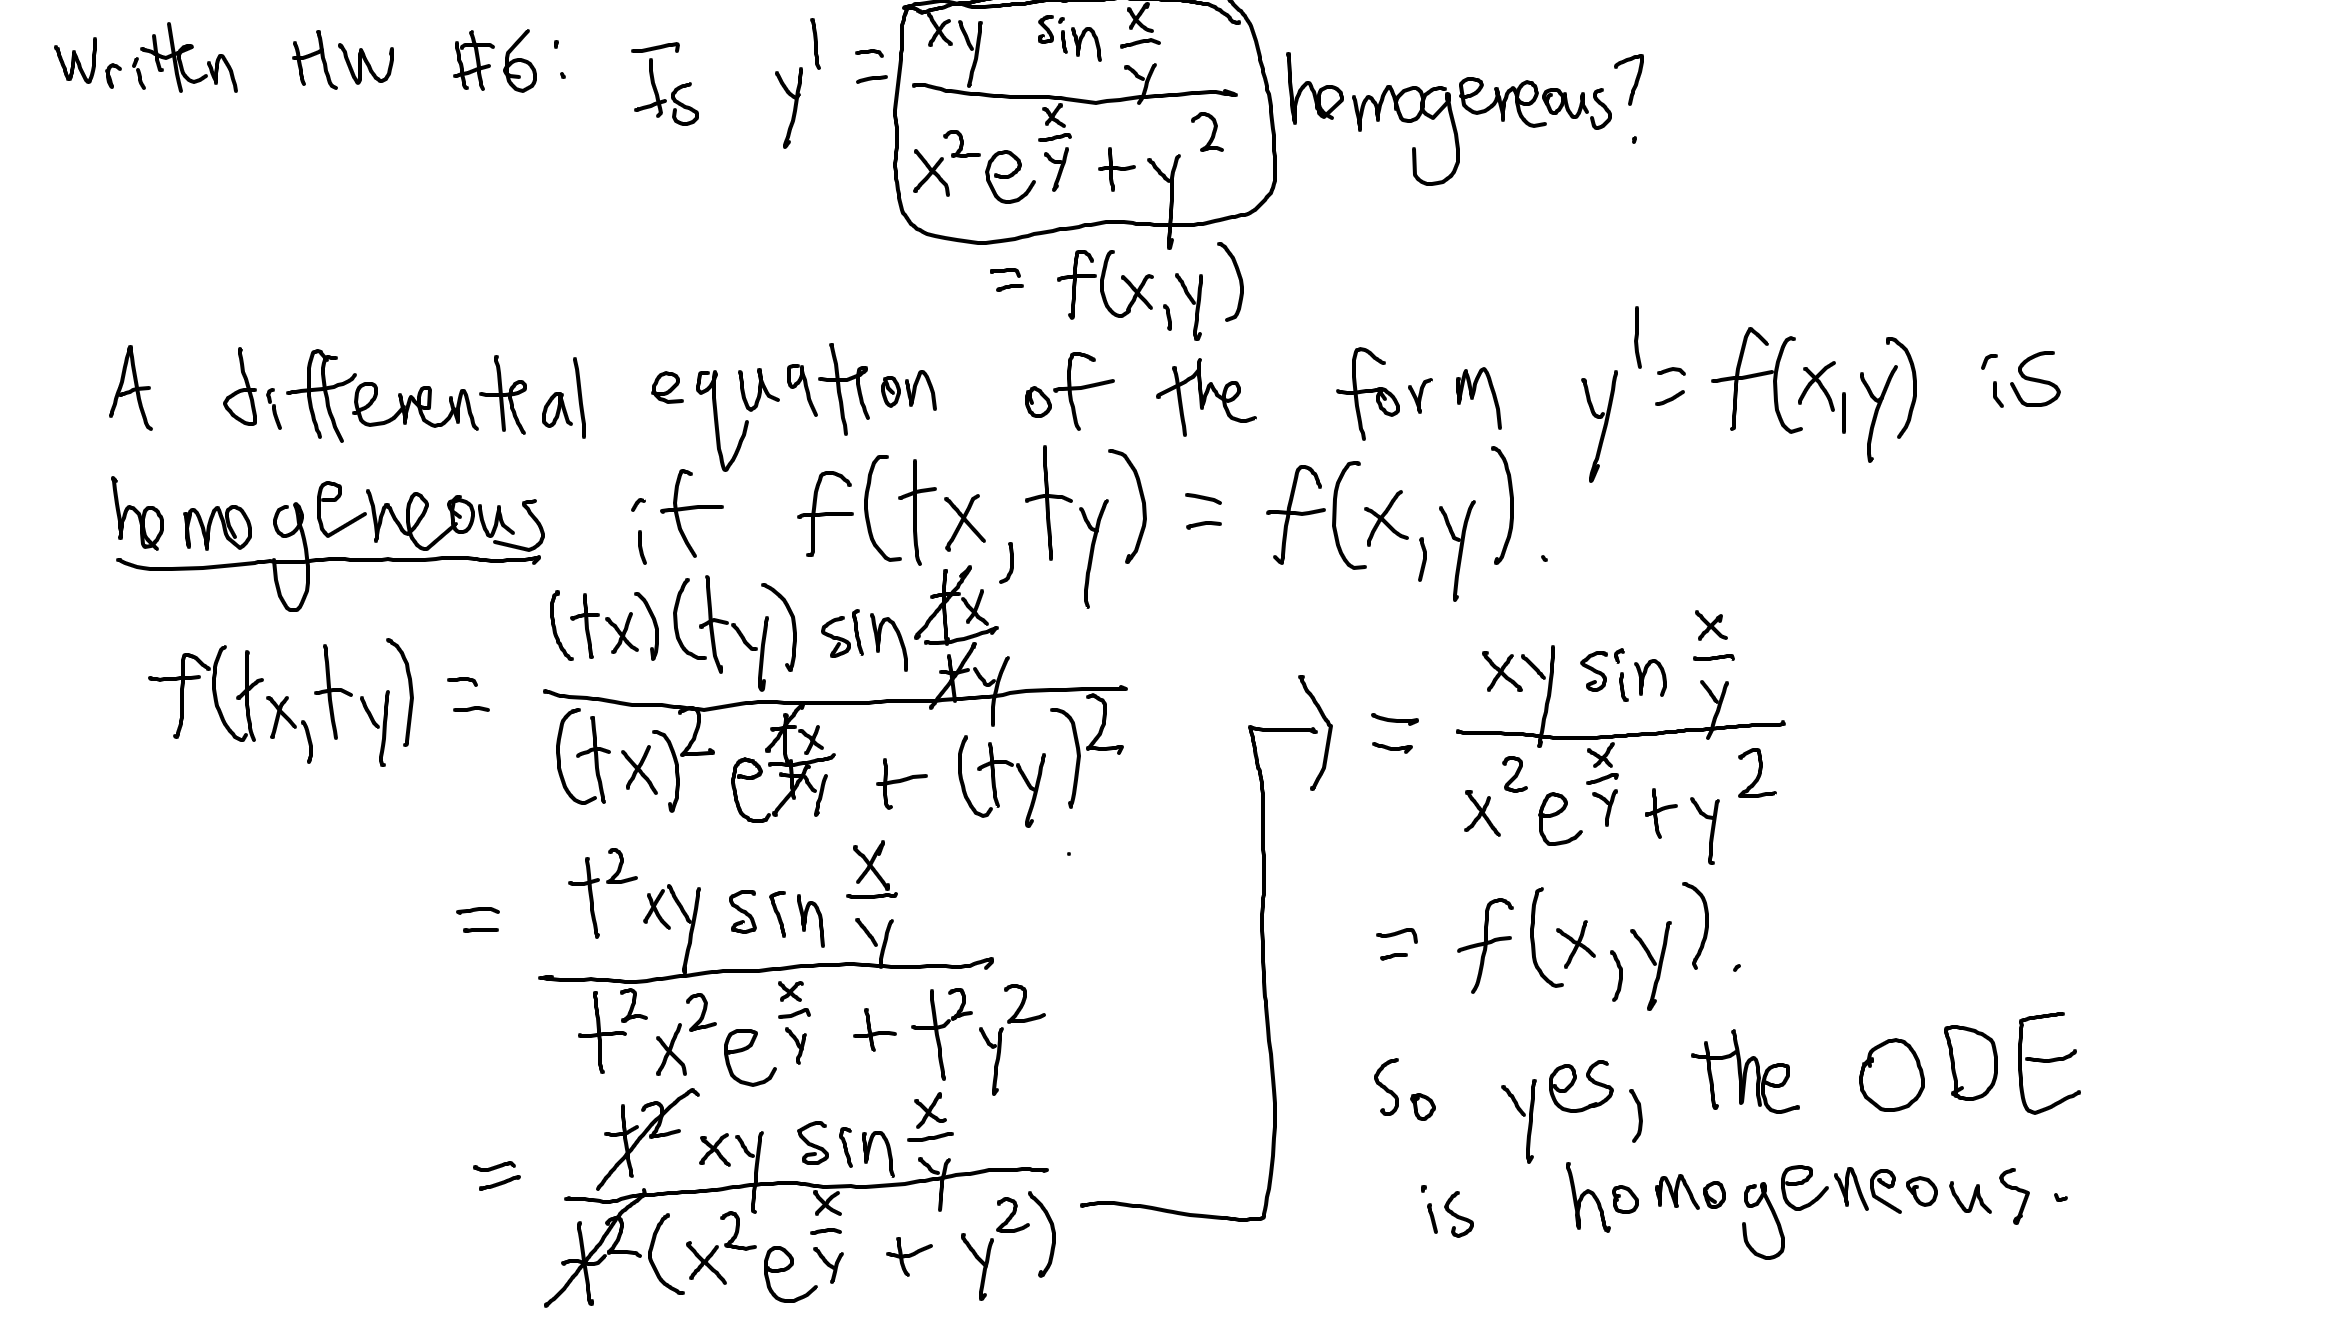 Written HW #6: Is y' = \frac{xy \sin \frac{x}{y}}{x^2 e^{\frac{x}{y}} + y^2} homogeneous?
= f(x,y)
A differential equation of the form y' = f(x,y) is
homogeneous if f(tx,ty) = f(x,y).
f(tx,ty) = \frac{(tx)(ty) \sin \frac{tx}{ty}}{(tx)^2 e^{\frac{tx}{ty}} + (ty)^2}
= \frac{t^2 xy \sin \frac{x}{y}}{t^2 x^2 e^{\frac{x}{y}} + t^2 y^2}
= \frac{t^2 xy \sin \frac{x}{y}}{t^2 (x^2 e^{\frac{x}{y}} + y^2)}
→ = \frac{xy \sin \frac{x}{y}}{x^2 e^{\frac{x}{y}} + y^2}
= f(x,y).
So yes, the ODE
is homogeneous.